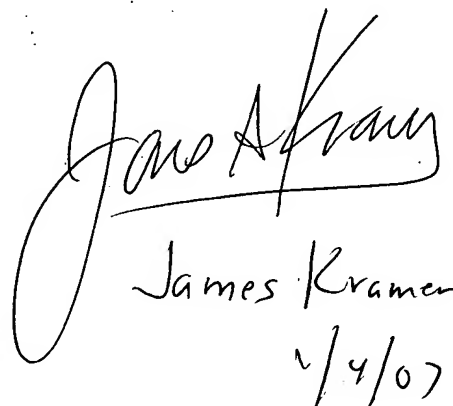 James A Kramer
James Kramer
/4/07